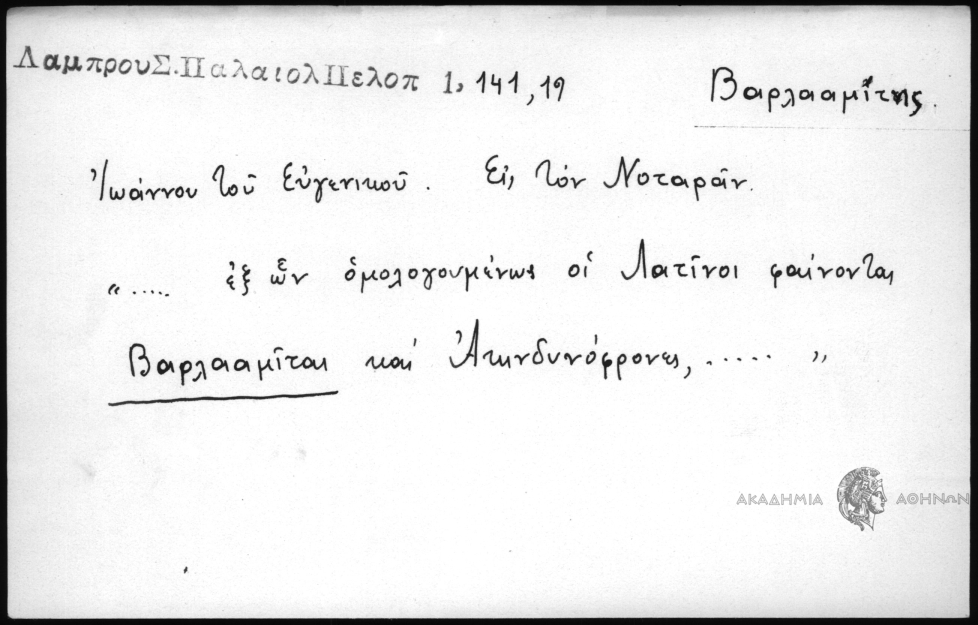 ΛαμπρουΣ.ΠαλαιολΠελοπ 1, 141, 19
Βαρλααμίτης.
Ἰωάννου τοῦ Εὐγενικοῦ. Εἰς τὸν Νοταρᾶν.
"..... ἐξ ὧν ὁμολογουμένως οἱ Λατῖνοι φαίνονται
Βαρλααμῖται καὶ Ἀκινδυνόφρονες, ..... "
ΑΚΑΔΗΜΙΑ ΑΘΗΝΩΝ